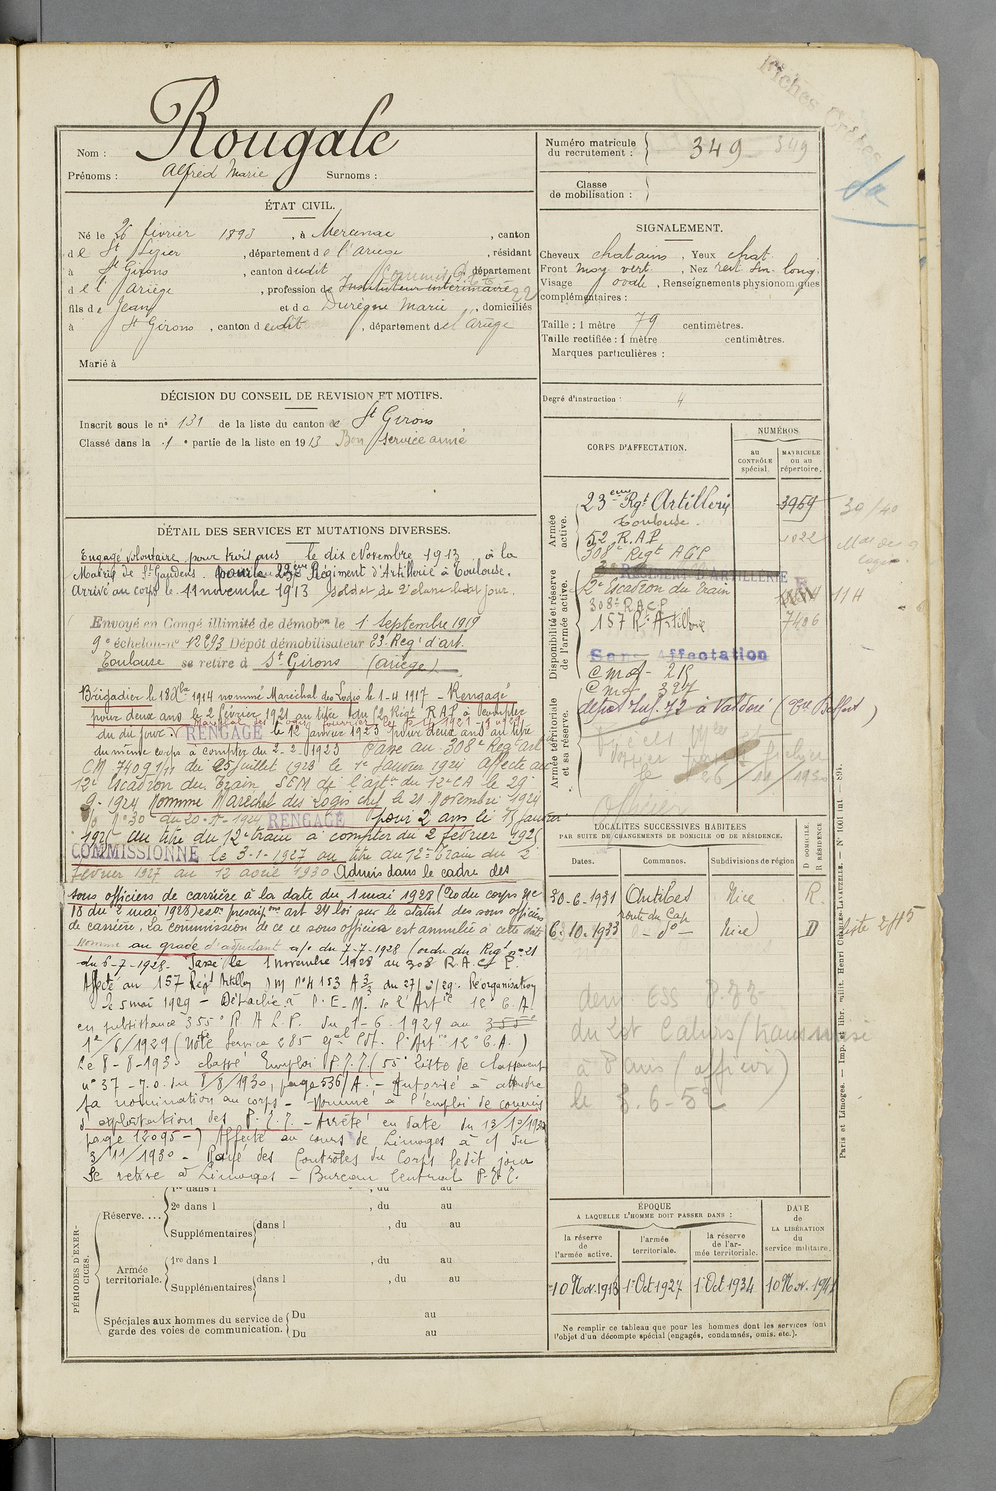 Fiches
Rougale
Nom :
Prénoms : Alfred Marie Surnoms :
Numéro matricule
du recrutement : 349 349
Classe
de mobilisation :
ÉTAT CIVIL.
Né le 26 février 1893, à Mercenac, canton
de St Lizier, département de l'Ariège, résidant
à St Girons, canton dudit, département
de l'Ariège, profession de Instituteur intérimaire
fils de Jean et de Durègne Marie, domiciliés
à St Girons, canton dudit, département de l'Ariège
Marié à
SIGNALEMENT.
Cheveux chatains, Yeux chat.
Front moy. vert., Nez rect. long.
Visage ovale, Renseignements physionomiques
complémentaires :
Taille : 1 mètre 79 centimètres.
Taille rectifiée : 1 mètre centimètres.
Marques particulières :
Degré d'instruction : 4
DÉCISION DU CONSEIL DE REVISION ET MOTIFS.
Inscrit sous le n° 131 de la liste du canton de St Girons
Classé dans la 1e partie de la liste en 1913 Bon service armé
CORPS D'AFFECTATION.
NUMÉROS
au
CONTRÔLE
spécial.
MATRICULE
ou au
répertoire.
Armée
active.
23ème Rgt Artillerie 3969
Toulouse.
52 R.A.P 1022
308e Regt AGP
30/40
Disponibilité et réserve
de l'armée active.
RÉGIMENT D'ARTILLERIE
12e Escadron du train 11H
308e R.A.C.P
157 Rt Artillerie 7406
Sans Affectation
Armée territoriale
et sa réserve.
Cmof. 215
Cmof. 327
dépôt Inf. 72 à Valdoie (Tre Belfort)
le 26/11/1930
officier
DÉTAIL DES SERVICES ET MUTATIONS DIVERSES.
Engagé volontaire pour trois ans le dix Novembre 1913, à la
Mairie de St Gaudens pour le 23ème Régiment d'Artillerie à Toulouse.
Arrivé au corps le 11 novembre 1913 soldat de 2e classe ledit jour.
Envoyé en Congé illimité de démobon le 1 septembre 1919
9e échelon n° 12893 Dépôt démobilisateur 23 Regt d'art.
Toulouse se retire à St Girons (Ariège)
Brigadier le 18 8bre 1914 nommé Maréchal des Logis le 1-4 1917 - Rengagé
pour deux ans le 2 février 1921 au titre du 52 Regt R.A.P. à compter
du dit jour. RENGAGÉ le 12 janvier 1923 pour deux ans au titre
du même corps à compter du 2-2-1923 Passé au 308e Regt art
CM 7409 1/11 du 25 juillet 1923 le 1er Janvier 1924 affecté au
12e Escadron du Train SEM de l'art. du 12e CA le 29
9-1924 Nommé Maréchal des Logis chef le 21 Novembre 1924
O/ N°30 du 20-11-1924 RENGAGÉ pour 2 ans le 15 janvier
1925 au titre du 12e train à compter du 2 février 1925
COMMISSIONNÉ le 3-1-1927 au titre du 12e Train du 2
février 1927 au 12 avril 1930 Admis dans le cadre des
sous officiers de carrière à la date du 1 mai 1928 (O. du corps n°
18 du 2 mai 1928) par prescripons art 24 loi sur le statut des sous officiers
de carrière, la commission de ce sous officier est annulée à cette date
Nommé au grade d'adjudant a/c du 7-7-1928 (ordre du Regt n°21
du 6-7-1928. Passé le 1 novembre 1928 au 308 R.A.C.P.
Affecté au 157 Régt Artillerie DM N°4153 A 3/3 du 27/2/29. Réorganisation
le 5 mai 1929 - Détaché à l'E.M. de l'Artie 12e C.A.
en subsistance 355e R.A.L.P. du 1-6-1929 au
1er/6/1929 (Note Service 285 Gal Cdt l'Artie 12e C.A.)
Le 8-8-1930 classé Emploi (P.T.T.) (55e Liste de classement
n° 37 - J.O. du 8/8/1930, page 536/A. - Autorisé à attendre
sa nomination au corps - Nommé à l'emploi de commis
d'exploitation des P.T.T. - Arrêté en date du 13/10/1930
page 12095 -) Affecté au cours de Limoges à c/ du
3/11/1930 - Rayé des Contrôles du Corps ledit jour
Se retire à Limoges - Bureau Central P.T.T.
LOCALITÉS SUCCESSIVES HABITÉES
PAR SUITE DE CHANGEMENTS DE DOMICILE OU DE RÉSIDENCE.
Dates. Communes. Subdivisions de région D DOMICILE. R RÉSIDENCE
30-6-1931 Antibes Nice R.
route du Cap
6-10-1933 -do- Nice D liste 245
dem. ESS P.T.T.
le 3-6-52
PÉRIODES D'EXERCICES.
Réserve....
1re dans l , du au
2e dans l , du au
Supplémentaires dans l , du au
Armée
territoriale.
1re dans l , du au
Supplémentaires dans l , du au
Spéciales aux hommes du service de
garde des voies de communication.
Du au
Du au
ÉPOQUE
A LAQUELLE L'HOMME DOIT PASSER DANS :
la réserve
de
l'armée active.
l'armée
territoriale.
la réserve
de l'armée territoriale.
DATE
de
LA LIBÉRATION
du
service militaire.
10 Nov. 1913 1er Oct 1927 1er Oct 1934 10 Nov. 1941
Ne remplir ce tableau que pour les hommes dont les services font
l'objet d'un décompte spécial (engagés, condamnés, omis, etc.).
Paris et Limoges. — Imp. et libr. milit. Henri CHARLES-LAVAUZELLE. — N° 1601 int